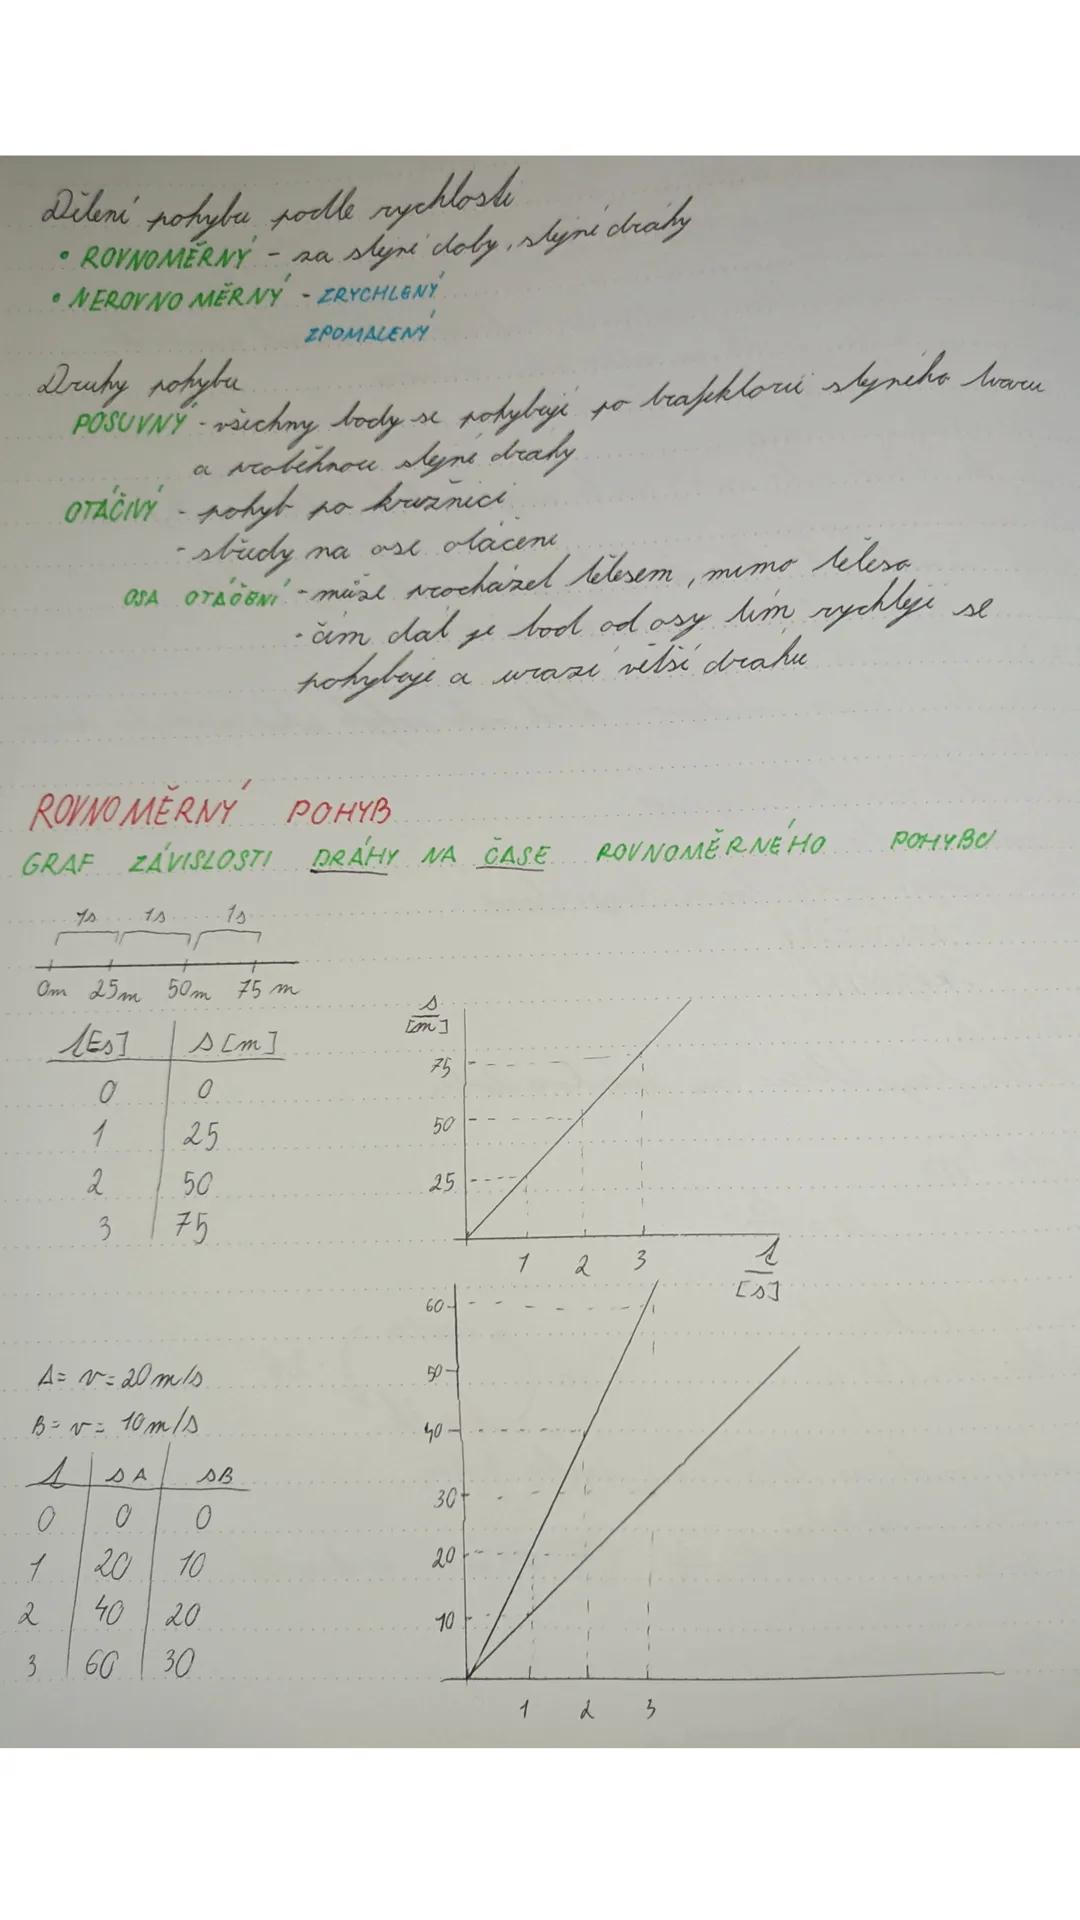 Dělení pohybu podle rychlosti
• ROVNOMĚRNÝ - za stejné doby, stejné dráhy
• NEROVNOMĚRNÝ - ZRYCHLENÝ
ZPOMALENÝ
Druhy pohybu
POSUVNÝ - všechny body se pohybují po trajektorii stejného tvaru
a proběhnou stejné dráhy
OTÁČIVÝ - pohyb po kružnici
- středy na ose otáčení
OSA OTÁČENÍ - může procházet tělesem, mimo těleso
- čím dál je bod od osy tím rychleji se
pohybuje a urazí větší dráhu
ROVNOMĚRNÝ POHYB
GRAF ZÁVISLOSTI DRÁHY NA ČASE ROVNOMĚRNÉHO POHYBU
1s 1s 1s
0m 25m 50m 75 m
t[s] s[m]
0 0
1 25
2 50
3 75
s
[m]
75
50
25
1 2 3
t
[s]
A= v=20m/s
B= v= 10m/s
t sA sB
0 0 0
1 20 10
2 40 20
3 60 30
60
50
40
30
20
10
1 2 3